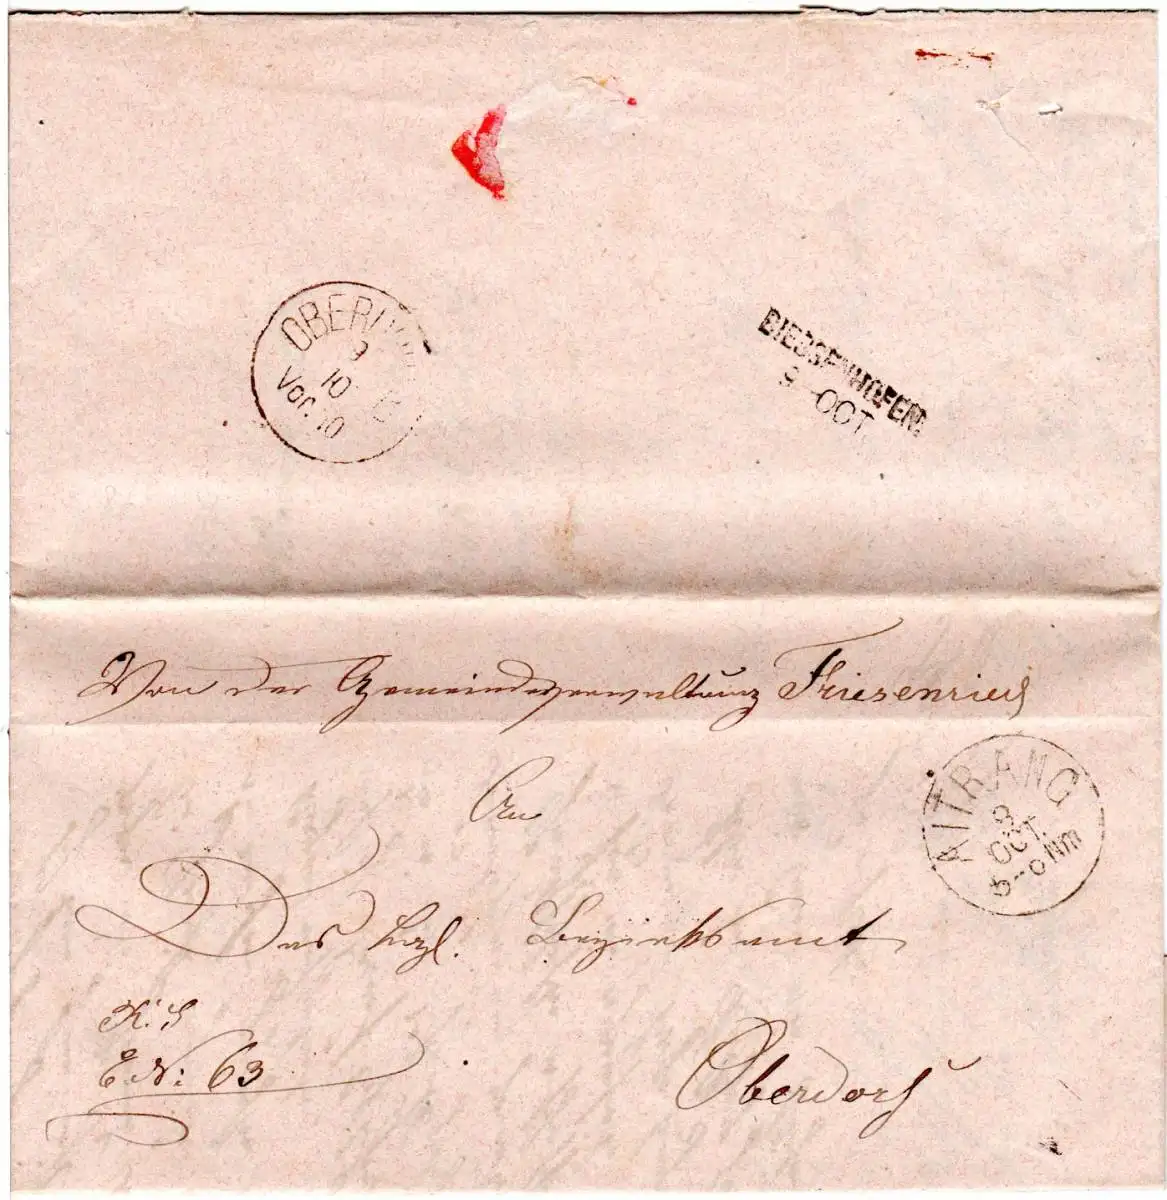 9
10
Vor. 10
BIESSENHOFEN.
9 OCT
Von der Gemeindeverwaltung Friesenried
An
AITRANG
8
OCT.
Nm
Das kgl. Bezirksamt
E. N: 63
Oberdorf